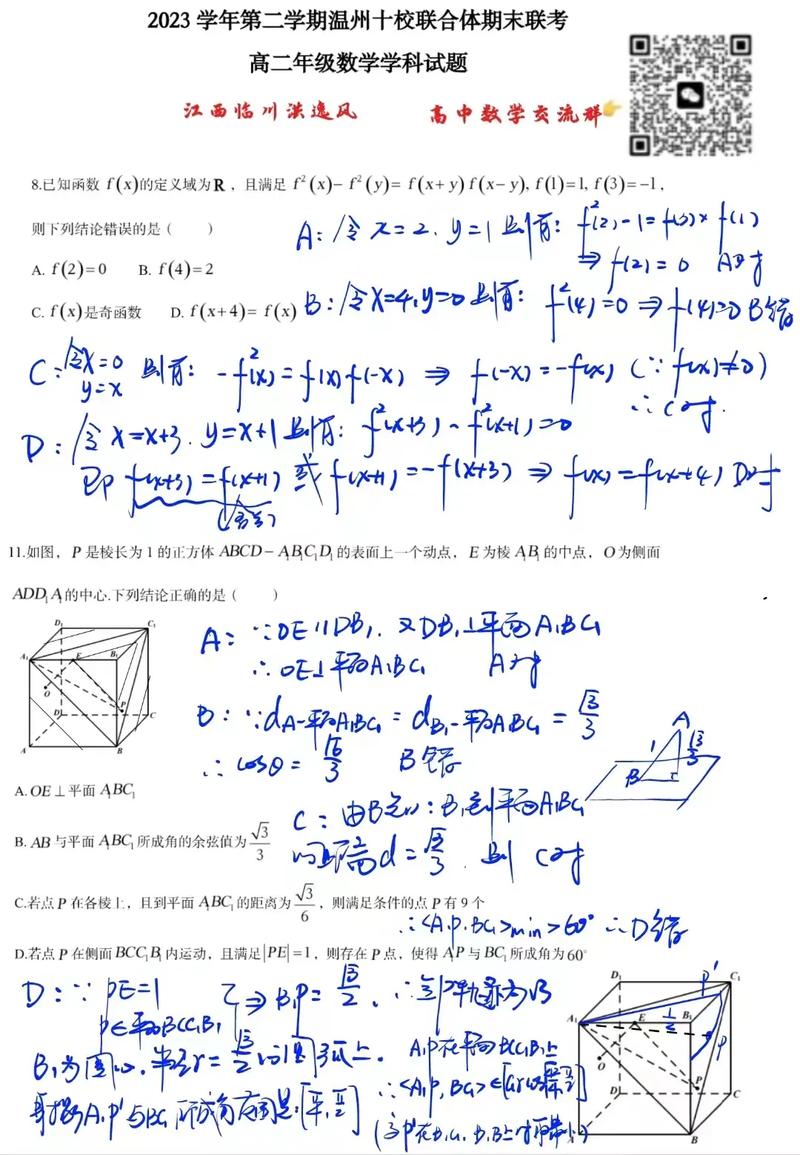 2023 学年第二学期温州十校联合体期末联考
高二年级数学学科试题
江西临川洪逸风 高中数学交流群
8.已知函数 f(x)的定义域为R，且满足 f²(x)−f²(y)=f(x+y)f(x−y), f(1)=1, f(3)=−1，
则下列结论错误的是（ ）
A. f(2)=0 B. f(4)=2
C. f(x)是奇函数 D. f(x+4)=f(x)
A：令 x=2、y=1 则有：f²(2)−1=f(3)×f(1)
⇒ f(2)=0 A对
B：令x=4,y=0 则有：f²(4)=0 ⇒ f(4)=0 B错
C：令x=0 y=x 则有：−f²(x)=f(x)f(−x) ⇒ f(−x)=−f(x) (∵ f(x)≠0)
∴ C对.
D：令 x=x+3、y=x+1 则有：f²(x+3)−f²(x+1)=0
即 f(x+3)=f(x+1) 或 f(x+1)=−f(x+3) ⇒ f(x)=f(x+4) D对
(舍去)
11.如图，P 是棱长为 1 的正方体 ABCD−A₁B₁C₁D₁ 的表面上一个动点，E 为棱 A₁B₁ 的中点，O 为侧面
ADD₁A₁的中心.下列结论正确的是（ ）
D₁ C₁
A₁ E B₁
O P
D C
A B
A：∵OE∥DB₁. 又DB₁⊥平面A₁BC₁
∴OE⊥平面A₁BC₁ A对
B：∵d A−平面A₁BC₁ = d B₁−平面A₁BC₁ = √3/3
∴ cosθ = √6/3 B错
A
1 √3/3
B
A. OE⊥平面 A₁BC₁
B. AB 与平面 A₁BC₁ 所成角的余弦值为 √3/3
C：由B知：B₁到平面A₁BC₁
的距离d=√3/3. 则 C对
C.若点 P 在各棱上，且到平面 A₁BC₁ 的距离为 √3/6，则满足条件的点 P 有 9 个
∴<A₁P, BC₁>min>60° ∴D错
D.若点 P 在侧面 BCC₁B₁ 内运动，且满足|PE|=1，则存在 P 点，使得 A₁P 与 BC₁ 所成角为60°
D：∵ PE=1
P∈平面BCC₁B₁ ⇒ B₁P=√3/2. ∴点P轨迹为以
B₁为圆心. 半径r=√3/2的圆弧上. A₁P在平面BCC₁B₁上
D₁ P' C₁
A₁ E 1/2 B₁
O P
D P C
B